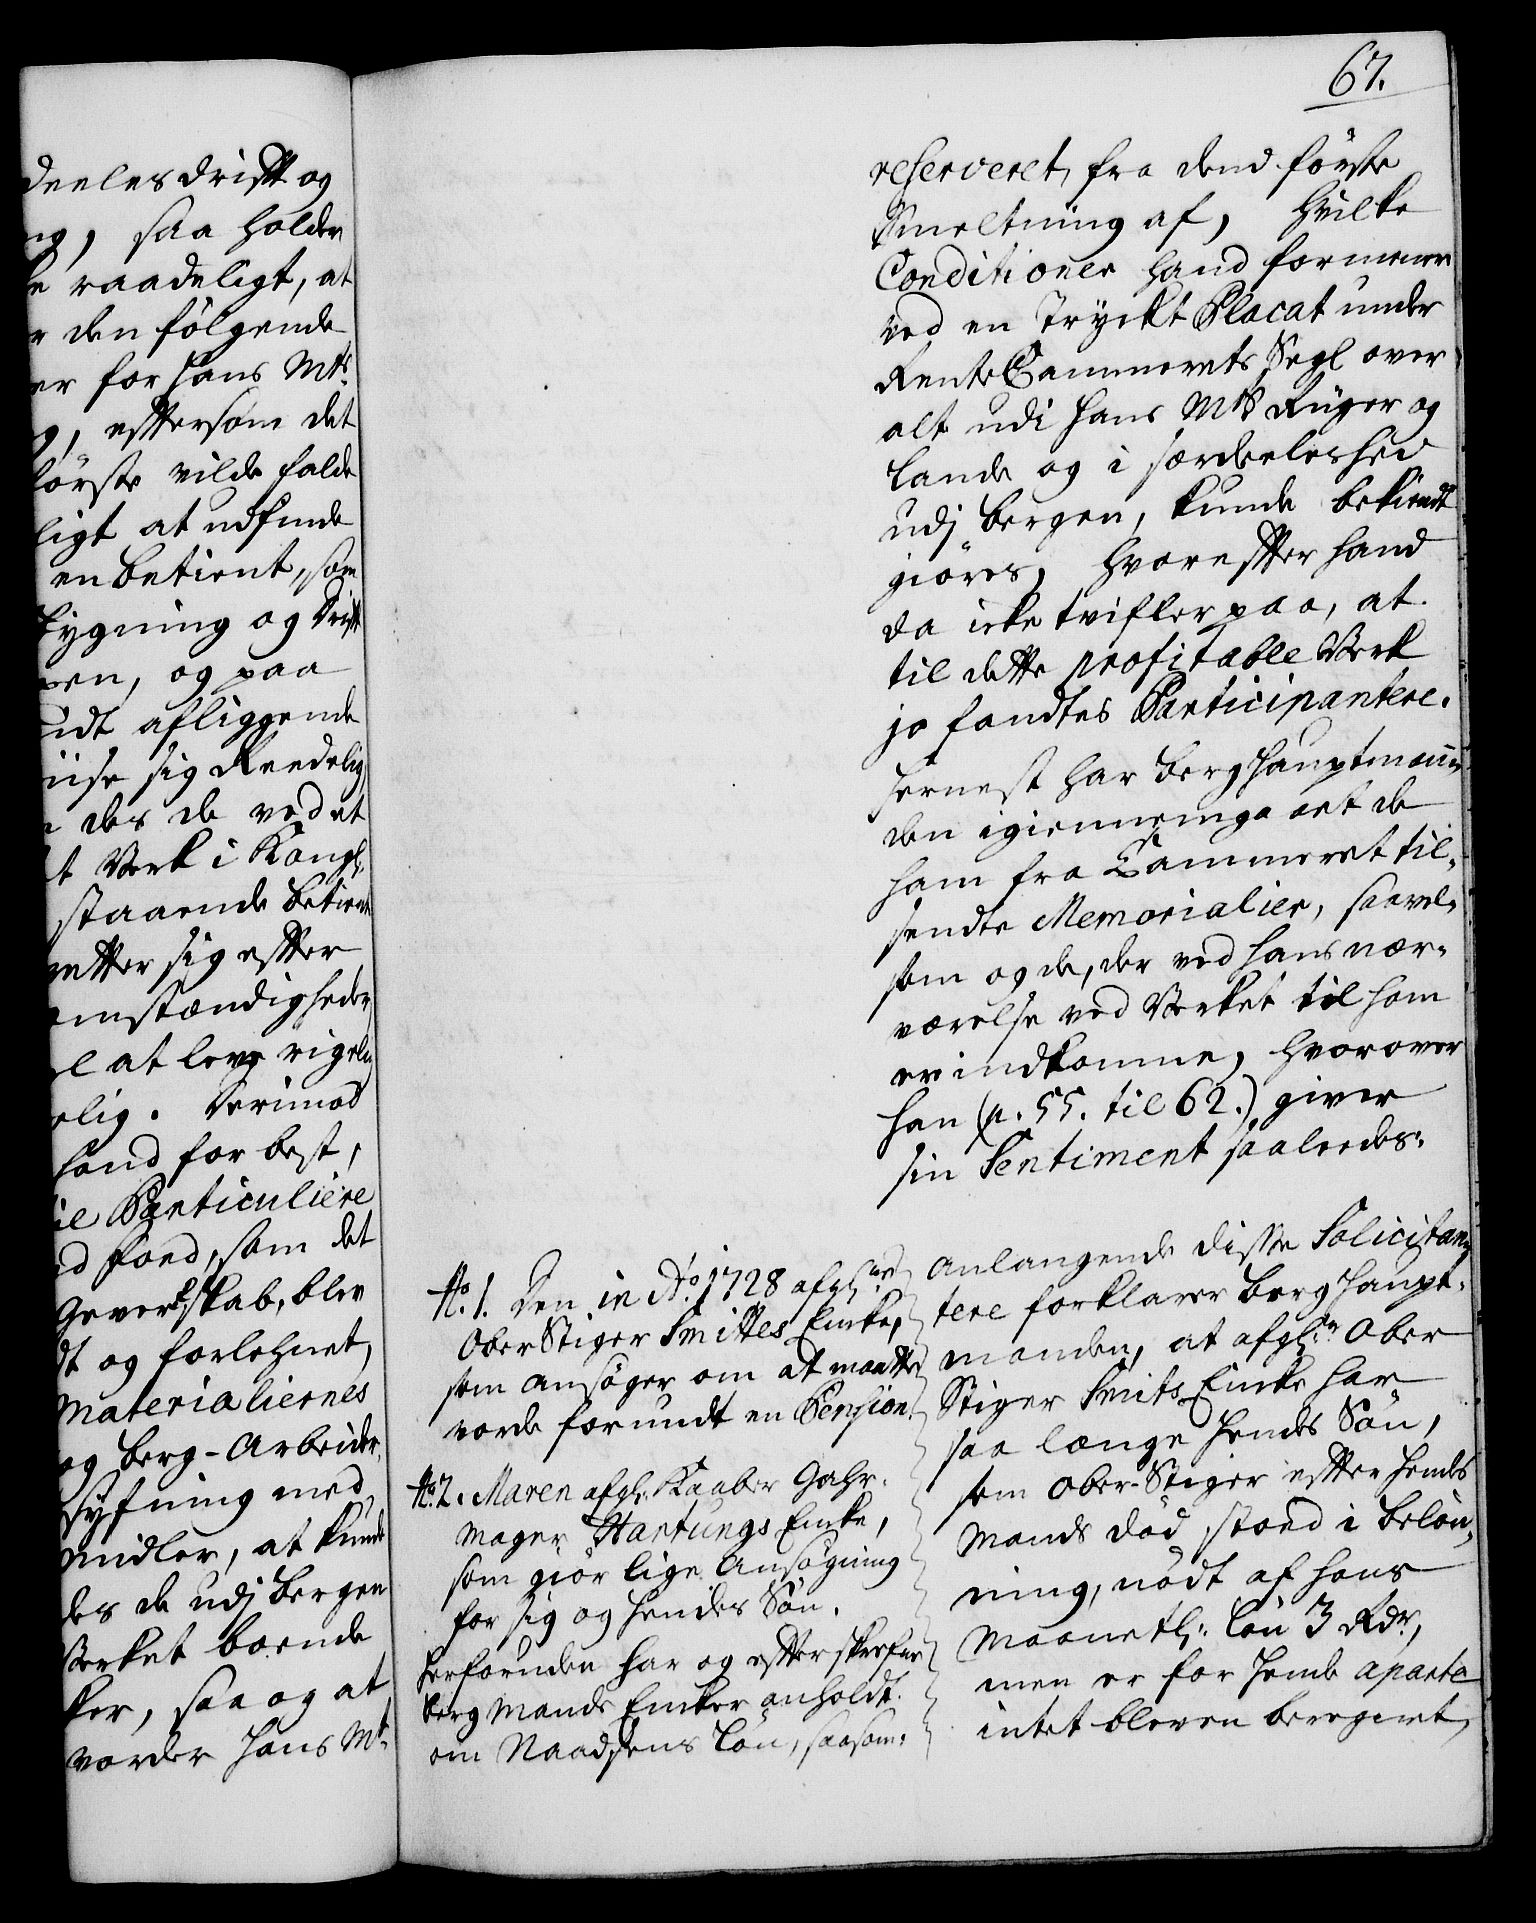 deeles drift og
ng, saa holder
e raadeligt, at
r den fölgende
er for hans Mts
g, efftersom det
förste vilde falde
ligt at udfinde
en betient, som
bygning og Drifft
en, og paa
idt afliggende
iise sig Reedelig
des de ved et
t Verk i Kongl.
staaende betiente
retter sig effter
omstændigheder
el at leve rigelig
elig. Derimod
hand for best,
ie Particuliere
d foed, som det
Geverkskab, blev
dt og forlehnet,
Materialiernes
og berg-Arbeider
syfning med
midler, at kunde
des de udj bergen
Verket boende
ker, saa og at
vorder hans Mt:
67.
reserveret, fra dend förste
Smeltning af, hvilke
Conditioner hand formener
ved en Tryckt Placat under
RenteCammerets Segl over
alt udi hans Mts Riiger og
lande og i særdeeleshed
udj bergen, kunde bekiendt
giöres, hvoreffter hand
da icke tvifler paa, at
til dette profitable Verk
jo fandtes Participantere.
Hernest har berghauptman-
den igiennemgaaet de
ham fra Cammeret til-
sendte Memorialier, saavel-
som og de, der ved hans nær-
værelse ved Verket til ham
er indkomne, hvorover
han (p. 55. til 62.) giver
sin Sentiment saaleedes:
No. 1. Den in Ao. 1728 afgl.ne
OberStiger Smittes Encke,
som ansöger om at maatte
vorde forundt en Pension.
No. 2. Maren afgl: Kaaber Gahr-
mager Hartungs Encke,
som giör lige Ansögning
for sig og hendes Sön.
herforuden har og effterskrefne
berg Mands Encker anholdt
om Naadsens Lön, saasom:
Anlangende disse Solicitan-
tere forklarer berg Haupt-
manden, at afgl.ne Ober
Stiger Smits Encke har
saa længe hendes Sön,
som Ober-Stiger effter hendes
Mands död, stoed i belön-
ning, nödt af hans
Maanetl: lön 3 Rdr,
men er for hende aparte
intet bleven beregnet,